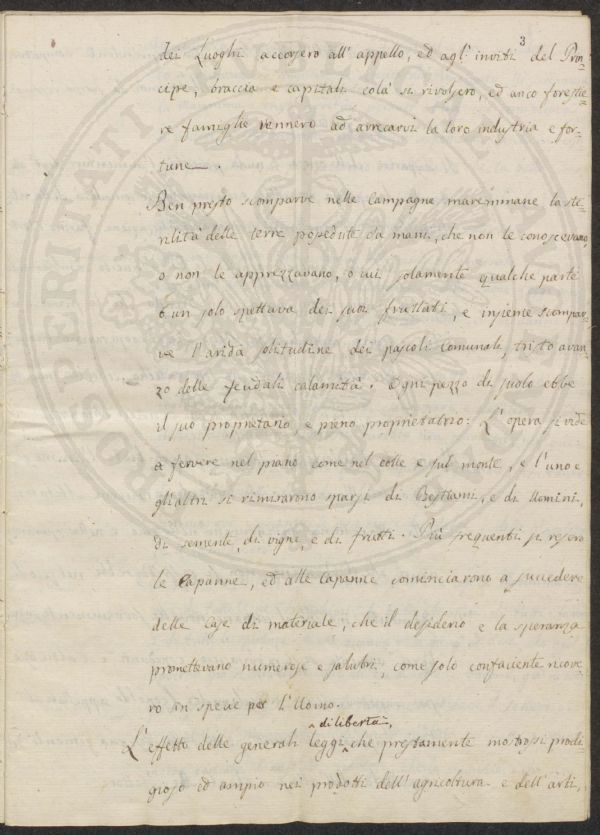 3
dei Luoghi accorsero all' appello, ed agl' inviti del Prin-
cipe, braccia e capitali colà si rivolsero, ed anco forestie-
re famiglie vennero ad arrecarvi la loro industria e for-
tune.
Ben presto scomparve nelle campagne maremmane la ste-
rilità delle terre possedute da mani, che non le conoscevano,
o non le apprezzavano, o cui solamente qualche parte
o un solo spettava dei suoi fruttati, e insieme scompar-
ve l'arida solitudine dei pascoli comunali, tristo avan-
zo delle feudali calamità. Ogni pezzo di suolo ebbe
il suo proprietario e pieno proprietario: L'opera si vide
a fervere nel piano come nel colle e sul monte, e l'uno e
gli altri si rimirarono sparsi di Bestiami, e di Uomini,
di semente, di vigne, e di frutti. Più frequenti si resero
le capanne, ed alle capanne cominciarono a succedere
delle Case di materiale, che il desiderio e la speranza
promettevano numerose e salubri, come solo confaciente ricove-
ro in specie per l'Uomo.
L'effetto delle generali leggi di libertà, che prestamente mostrossi prodi-
gioso ed ampio nei prodotti dell'agricoltura e dell'arti,
PROSPERITATI PUBLICAE